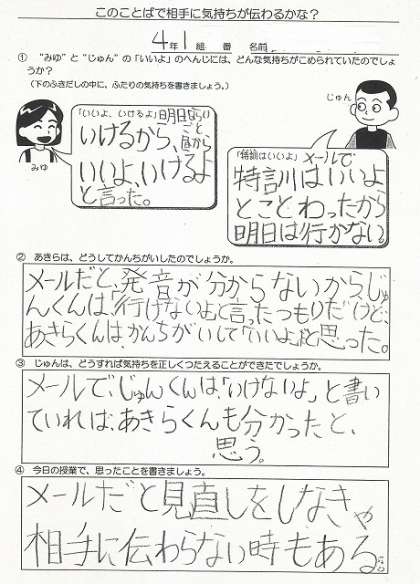 このことばで相手に気持ちが伝わるかな?
4年1組 番 名前
① “みゆ”と“じゅん”の「いいよ」のへんじには、どんな気持ちがこめられていたのでしょ
うか?
(下のふきだしの中に、ふたりの気持ちを書きましょう。)
じゅん
みゆ
「いいよ、いけるよ」明日ならい
ごと、
いけるから、昼から
いいよ、いけるよ
と言った。
「特訓はいいよ」メールで
特訓はいいよ
とことわったから
明日は行かない。
② あきらは、どうしてかんちがいしたのでしょうか。
メールだと、発音が分からないからじゅ
んくんは、「行けないよ」と言ったつもりだけど、
あきらくんはかんちがいして「いいよ」だと思った。
③ じゅんは、どうすれば気持ちを正しくつたえることができたでしょうか。
メールで、じゅんくんは、「いけないよ」と書い
ていれば、あきらくんも分かったと、
思う。
④ 今日の授業で、思ったことを書きましょう。
メールだと見直しをしなきゃ
相手に伝わらない時もある。